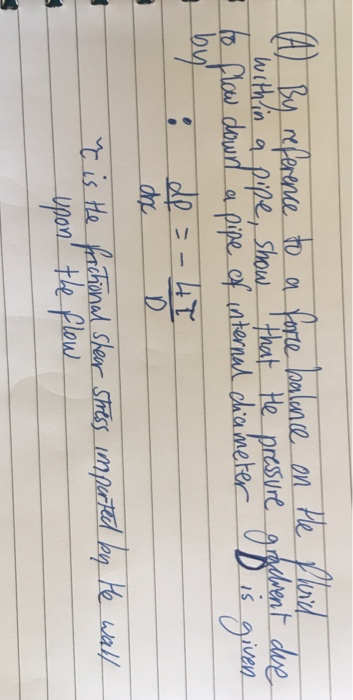 (A) By reference to a force balance on the fluid
within a pipe, show that the pressure gradient due
to flow down a pipe of internal diameter D is given
by : dP/dx = - 4τ/D
τ is the frictional shear stress imparted by the wall
upon the flow